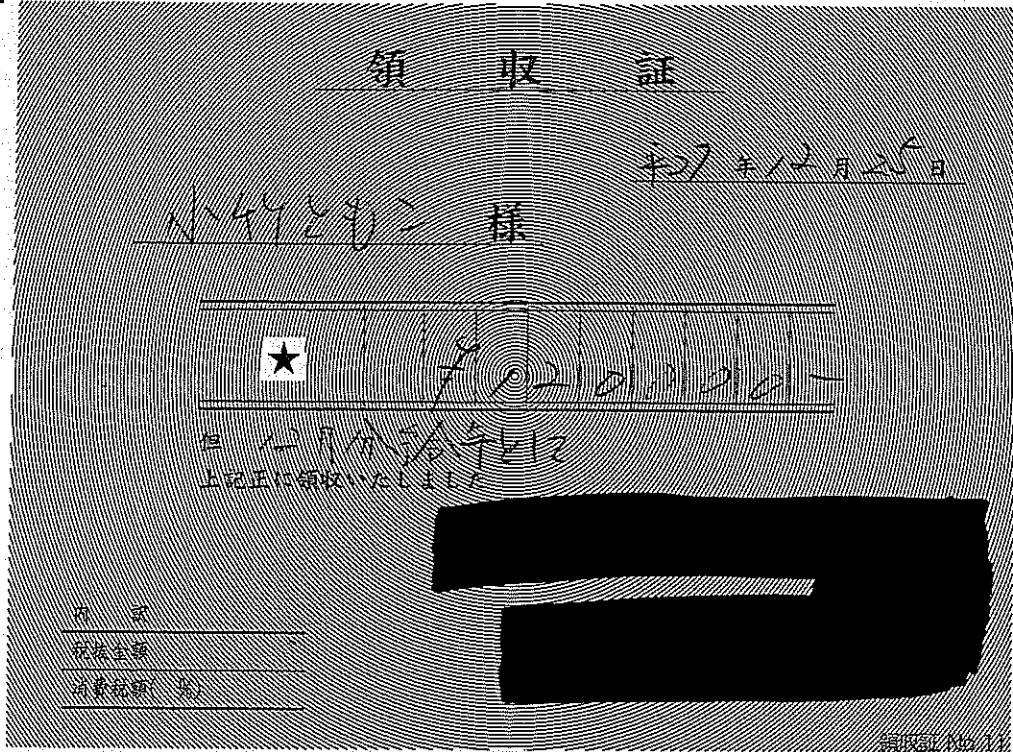 領収証
平27年12月25日
小竹ともこ 様
★ ¥120,000-
但 12月分給与として
上記正に領収いたしました
内訳
税抜金額
消費税額( %)
領収証 No. 11